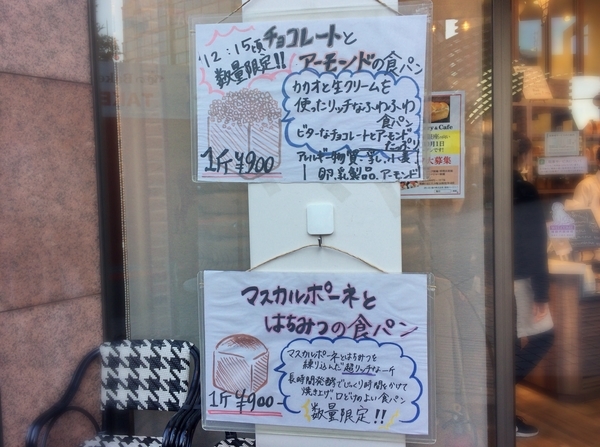 12:15頃
数量限定!!
チョコレートと
アーモンドの食パン
カカオと生クリームを
使ったリッチなふわふわ
食パン
ビターなチョコレートとアーモンド
たっぷり
1斤¥900
アレルギー物質…乳、小麦
卵、乳製品、アーモンド
y & Cafe
月1日
大募集
マスカルポーネと
はちみつの食パン
マスカルポーネとはちみつを
練り込んだ超リッチな一斤
長時間発酵でじっくり時間をかけて
焼き上げ、口どけのよい食パン
数量限定!!
1斤¥900-